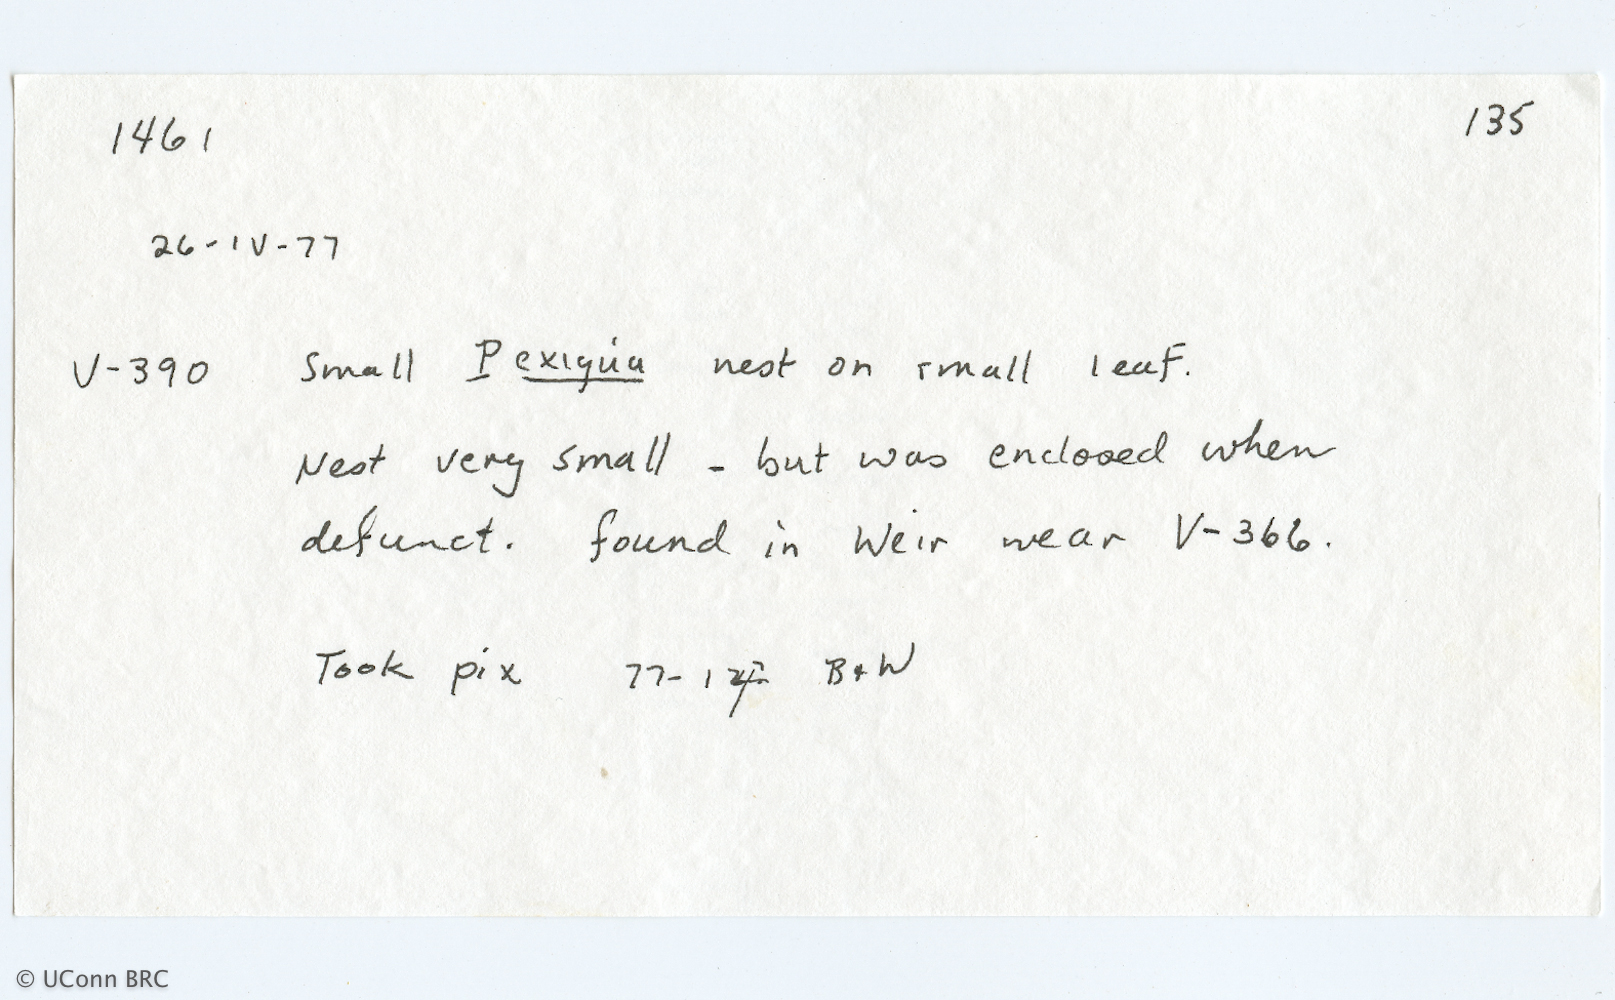 1461 135
26-IV-77
V-390 Small P exigua nest on small leaf.
Nest very small - but was enclosed when
defunct. found in Weir near V-366.
Took pix B+W
© UConn BRC